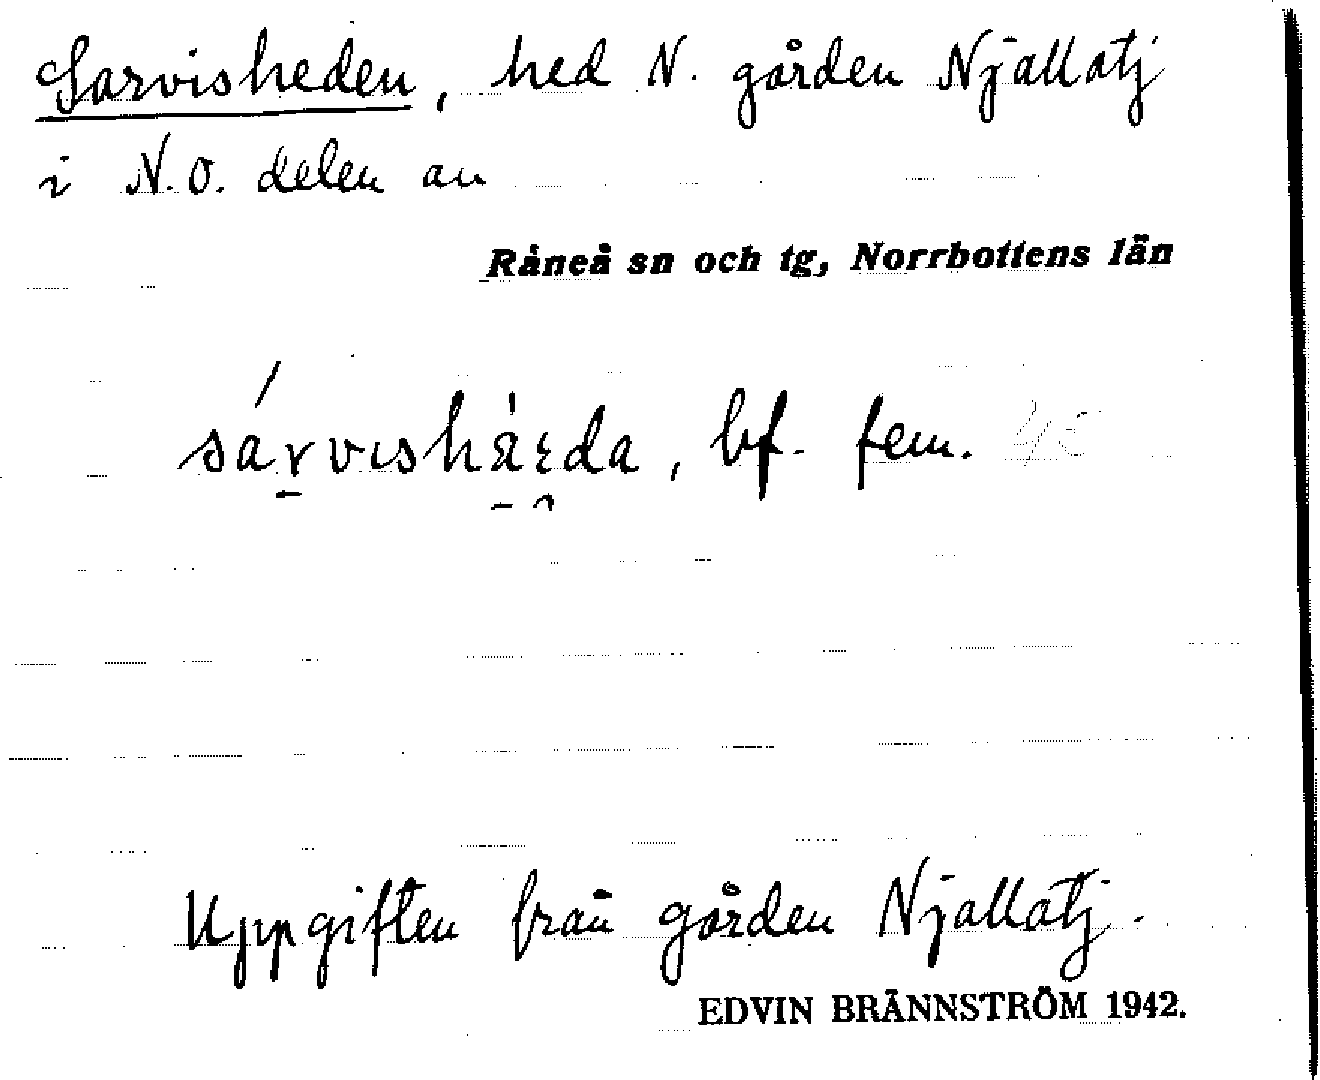 Sarvisheden, hed N. gården Njallatj
i N.O. delen av
Råneå sn och tg, Norrbottens län
bf. fem.
Uppgiften från gården Njallatj.
EDVIN BRÄNNSTRÖM 1942.